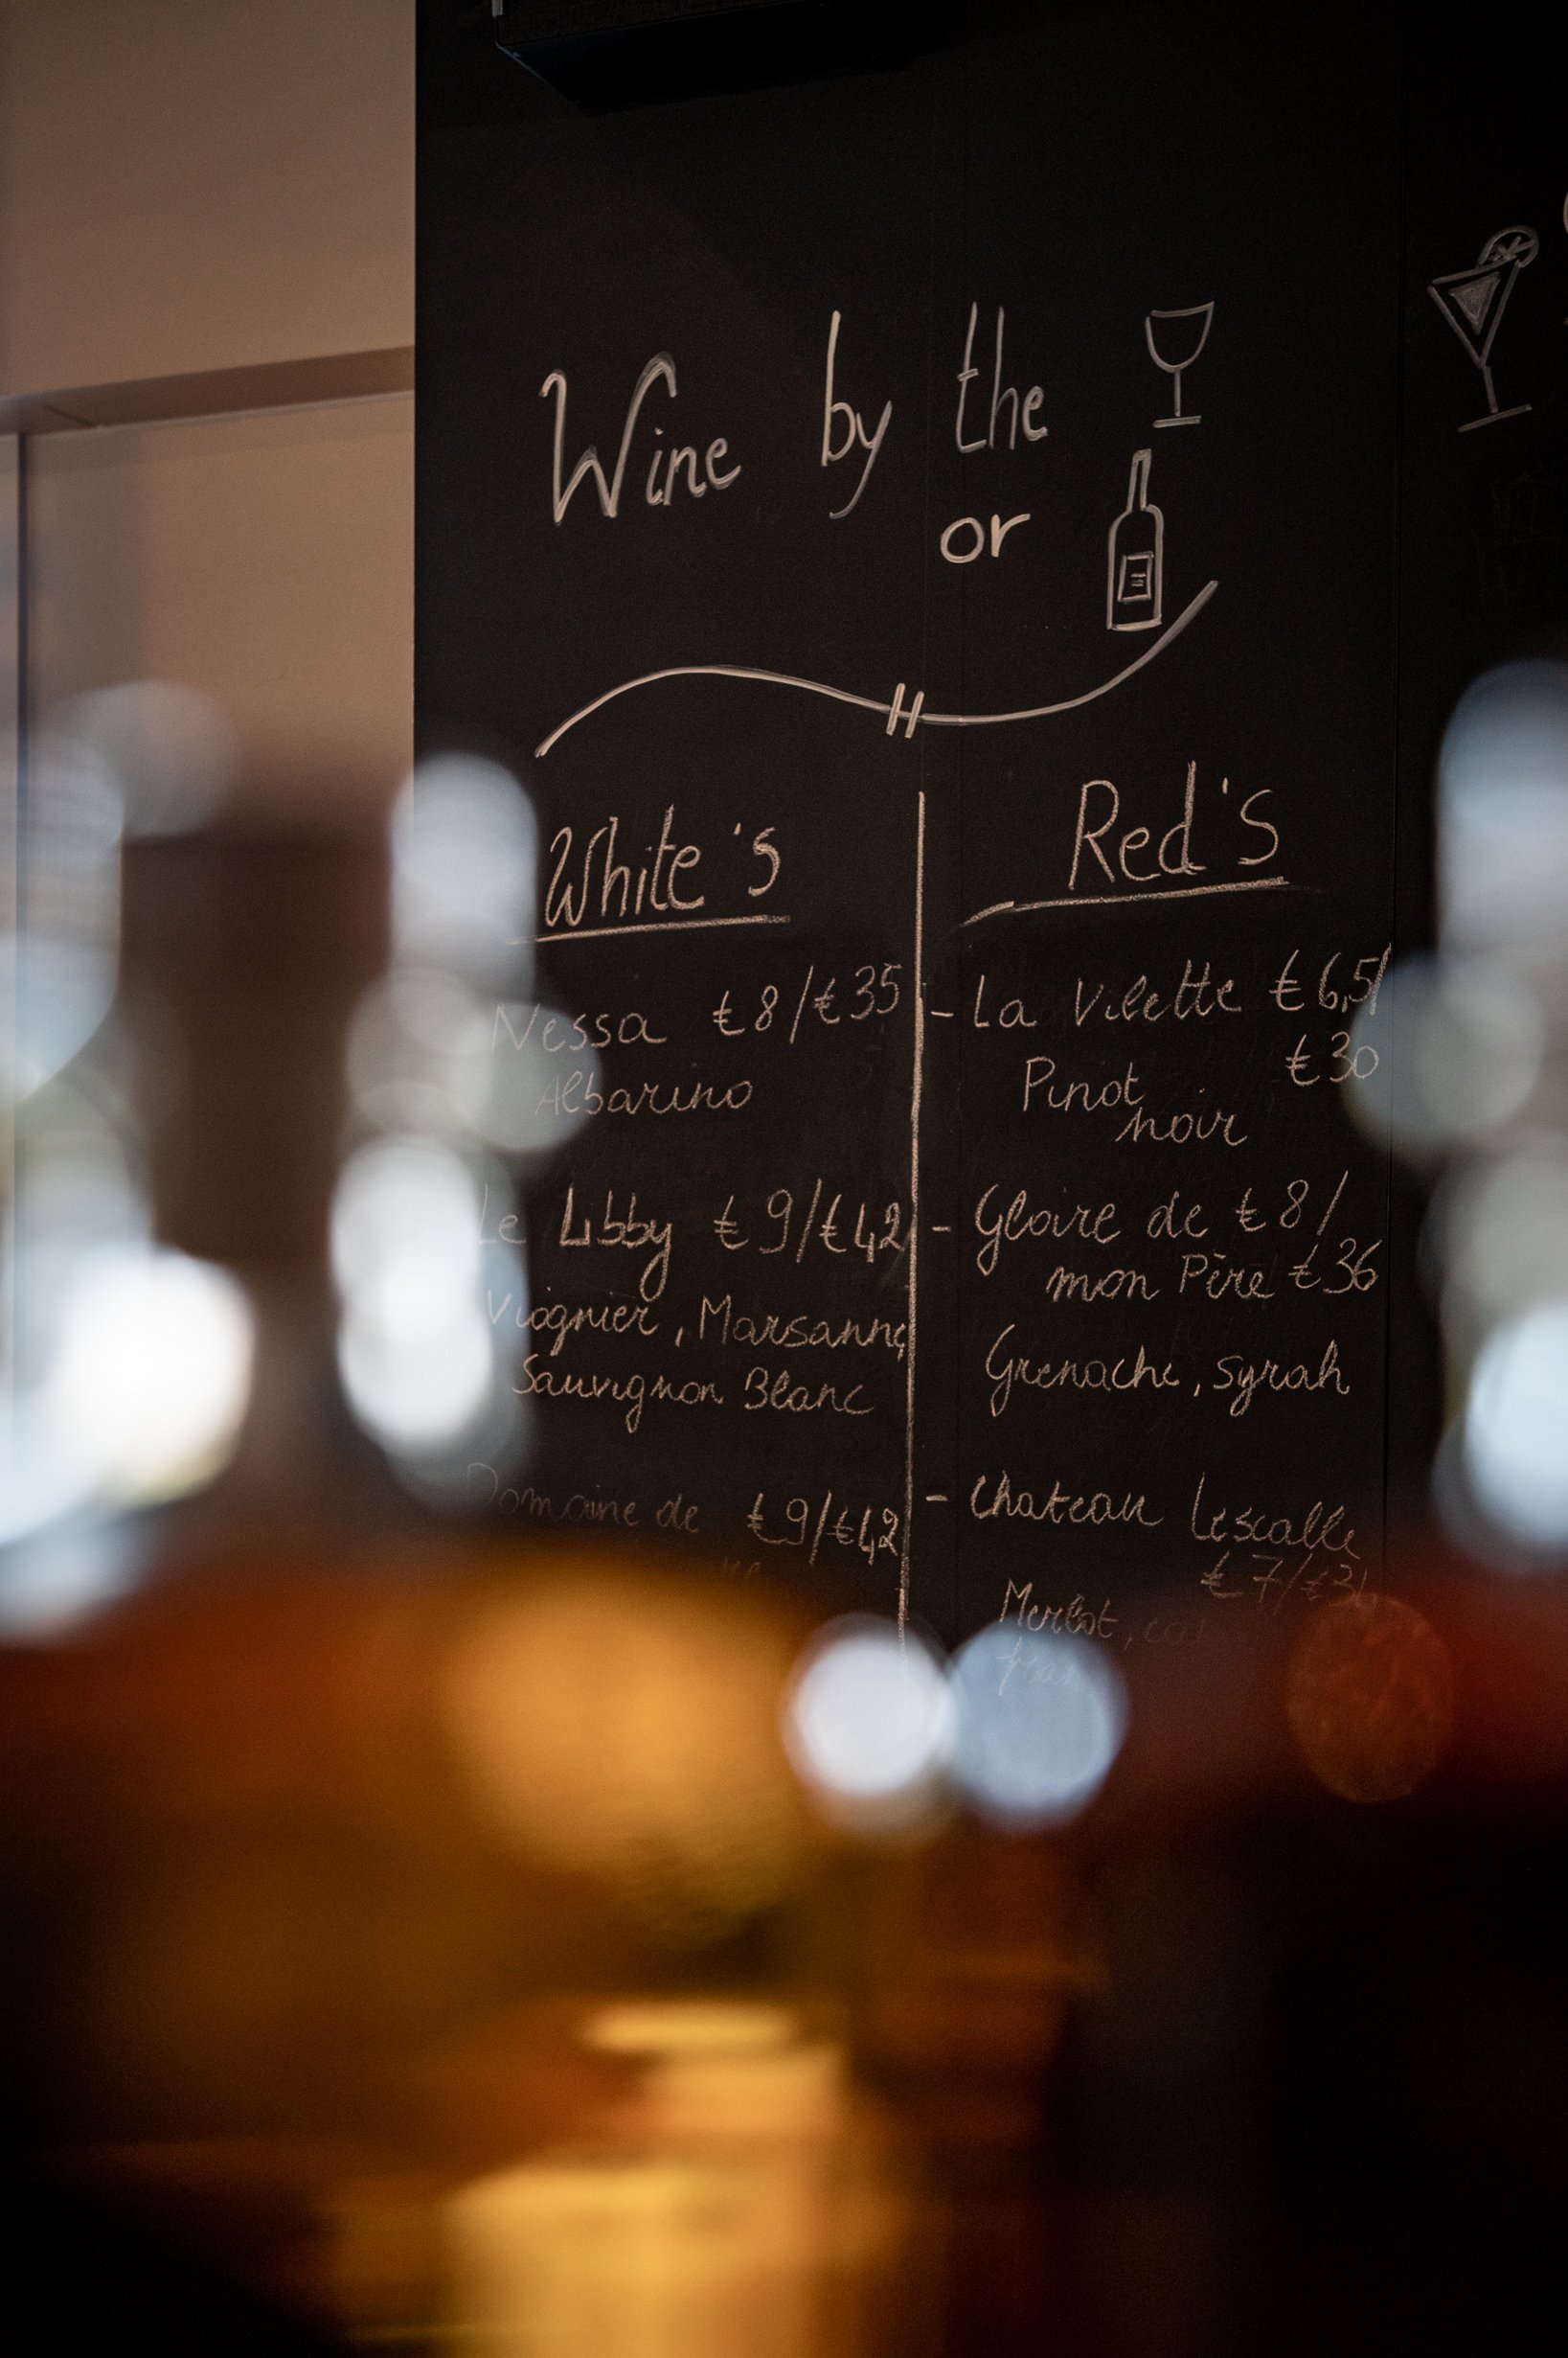 Wine by the
or
White's
Nessa €8/€35
Albarino
Le Libby €9/€42
Viognier, Marsanne,
Sauvignon Blanc
Domaine de €9/€42
Red's
- La Vilette €6,5/
€30
Pinot
noir
- Gloire de €8/
mon Père €36
Grenache, syrah
- Chateau Lescalle
€7/€3
Merlot,